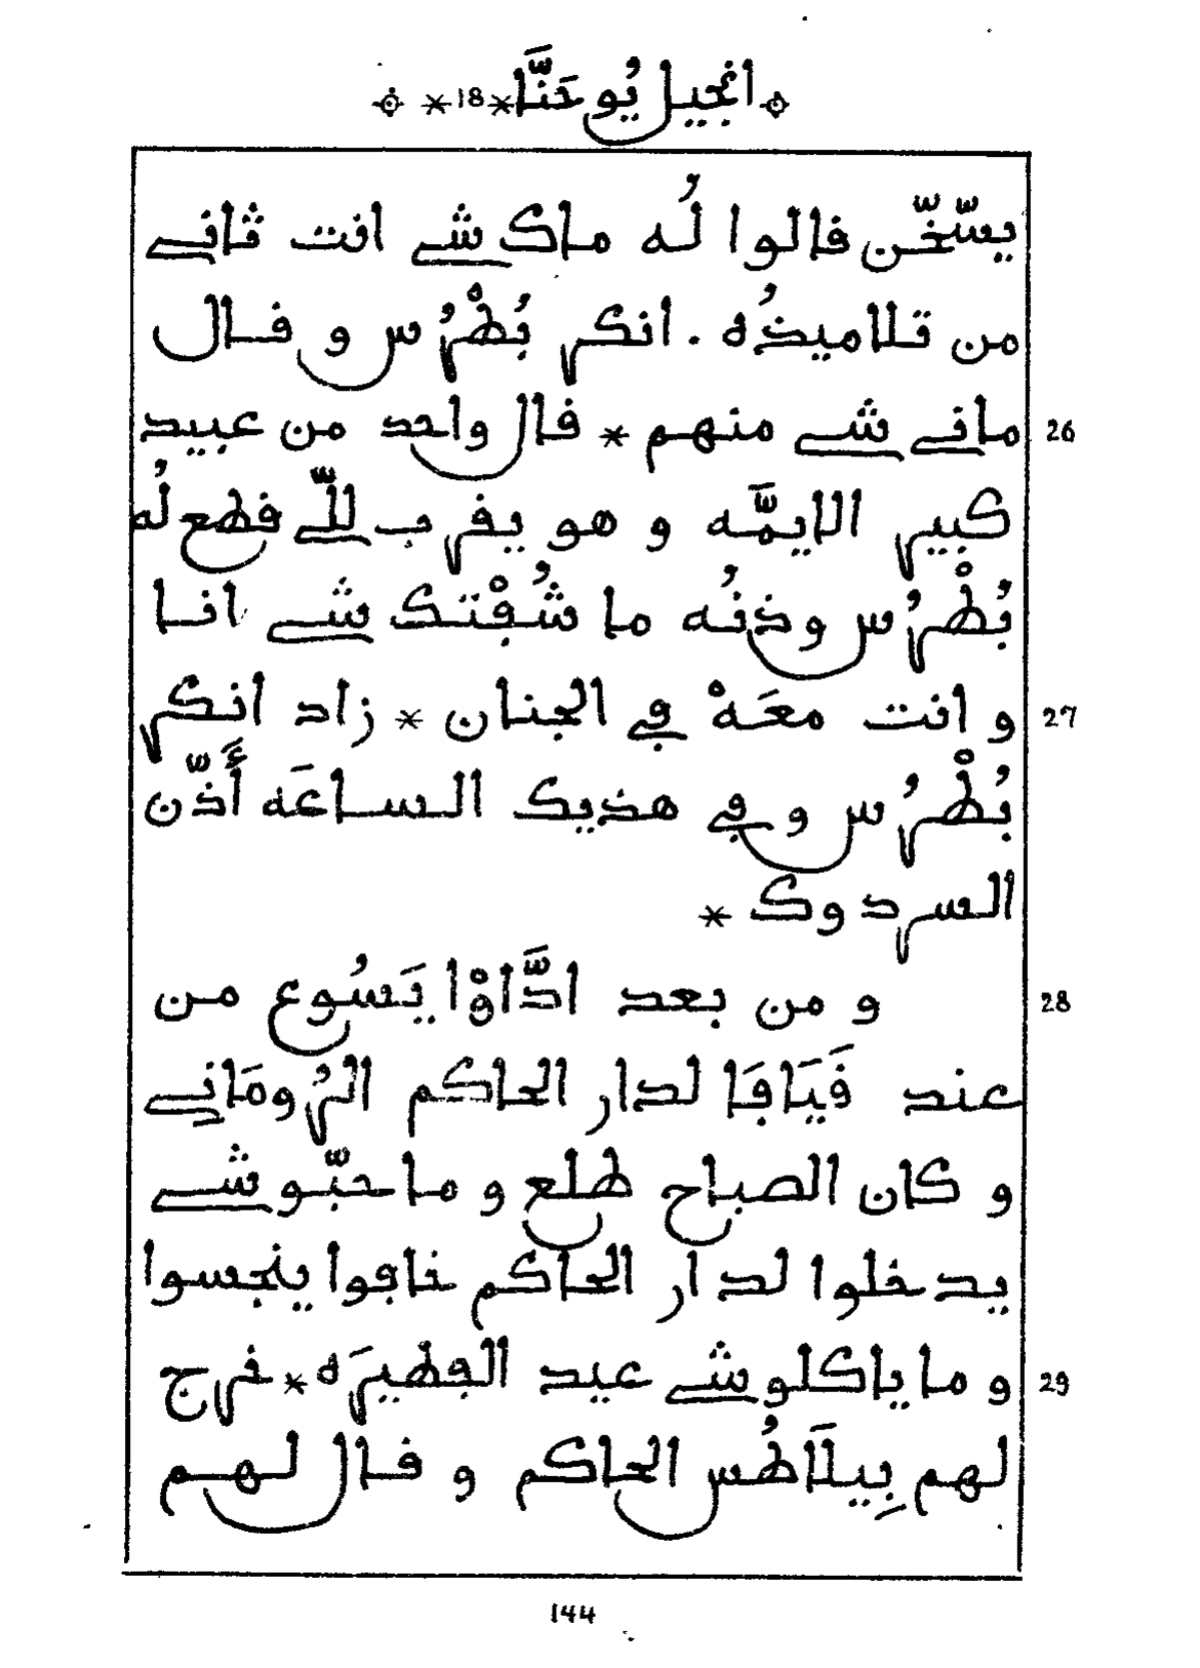 انجيل يُوحَنَّا * 18 *
يسّخّن قالوا لُه ماك شي انت ثاني
من تلاميذُه . انكر بُطْرُس و قال
26 ماني شي منهم * قال واحد من عبيد
كبير الايمَّه و هو يقرب للّي قطع لُه
بُطْرُس وذنُه ما شُفْتك شي انا
27 و انت معَهْ في الجنان * زاد انكر
بُطْرُس و في هذيك الساعَه أَذّن
السردوك *
28 و من بعد ادَّاوْا يَسُوع من
عند قَيَافَا لدار الحاكم الرُومَاني
و كان الصباح طلع و ما حبّوشي
يدخلوا لدار الحاكم خافوا ينجسوا
29 و ما ياكلوشي عيد الفطيرَه * خرج
لهم بِيلَاطُس الحاكم و قال لهم
144